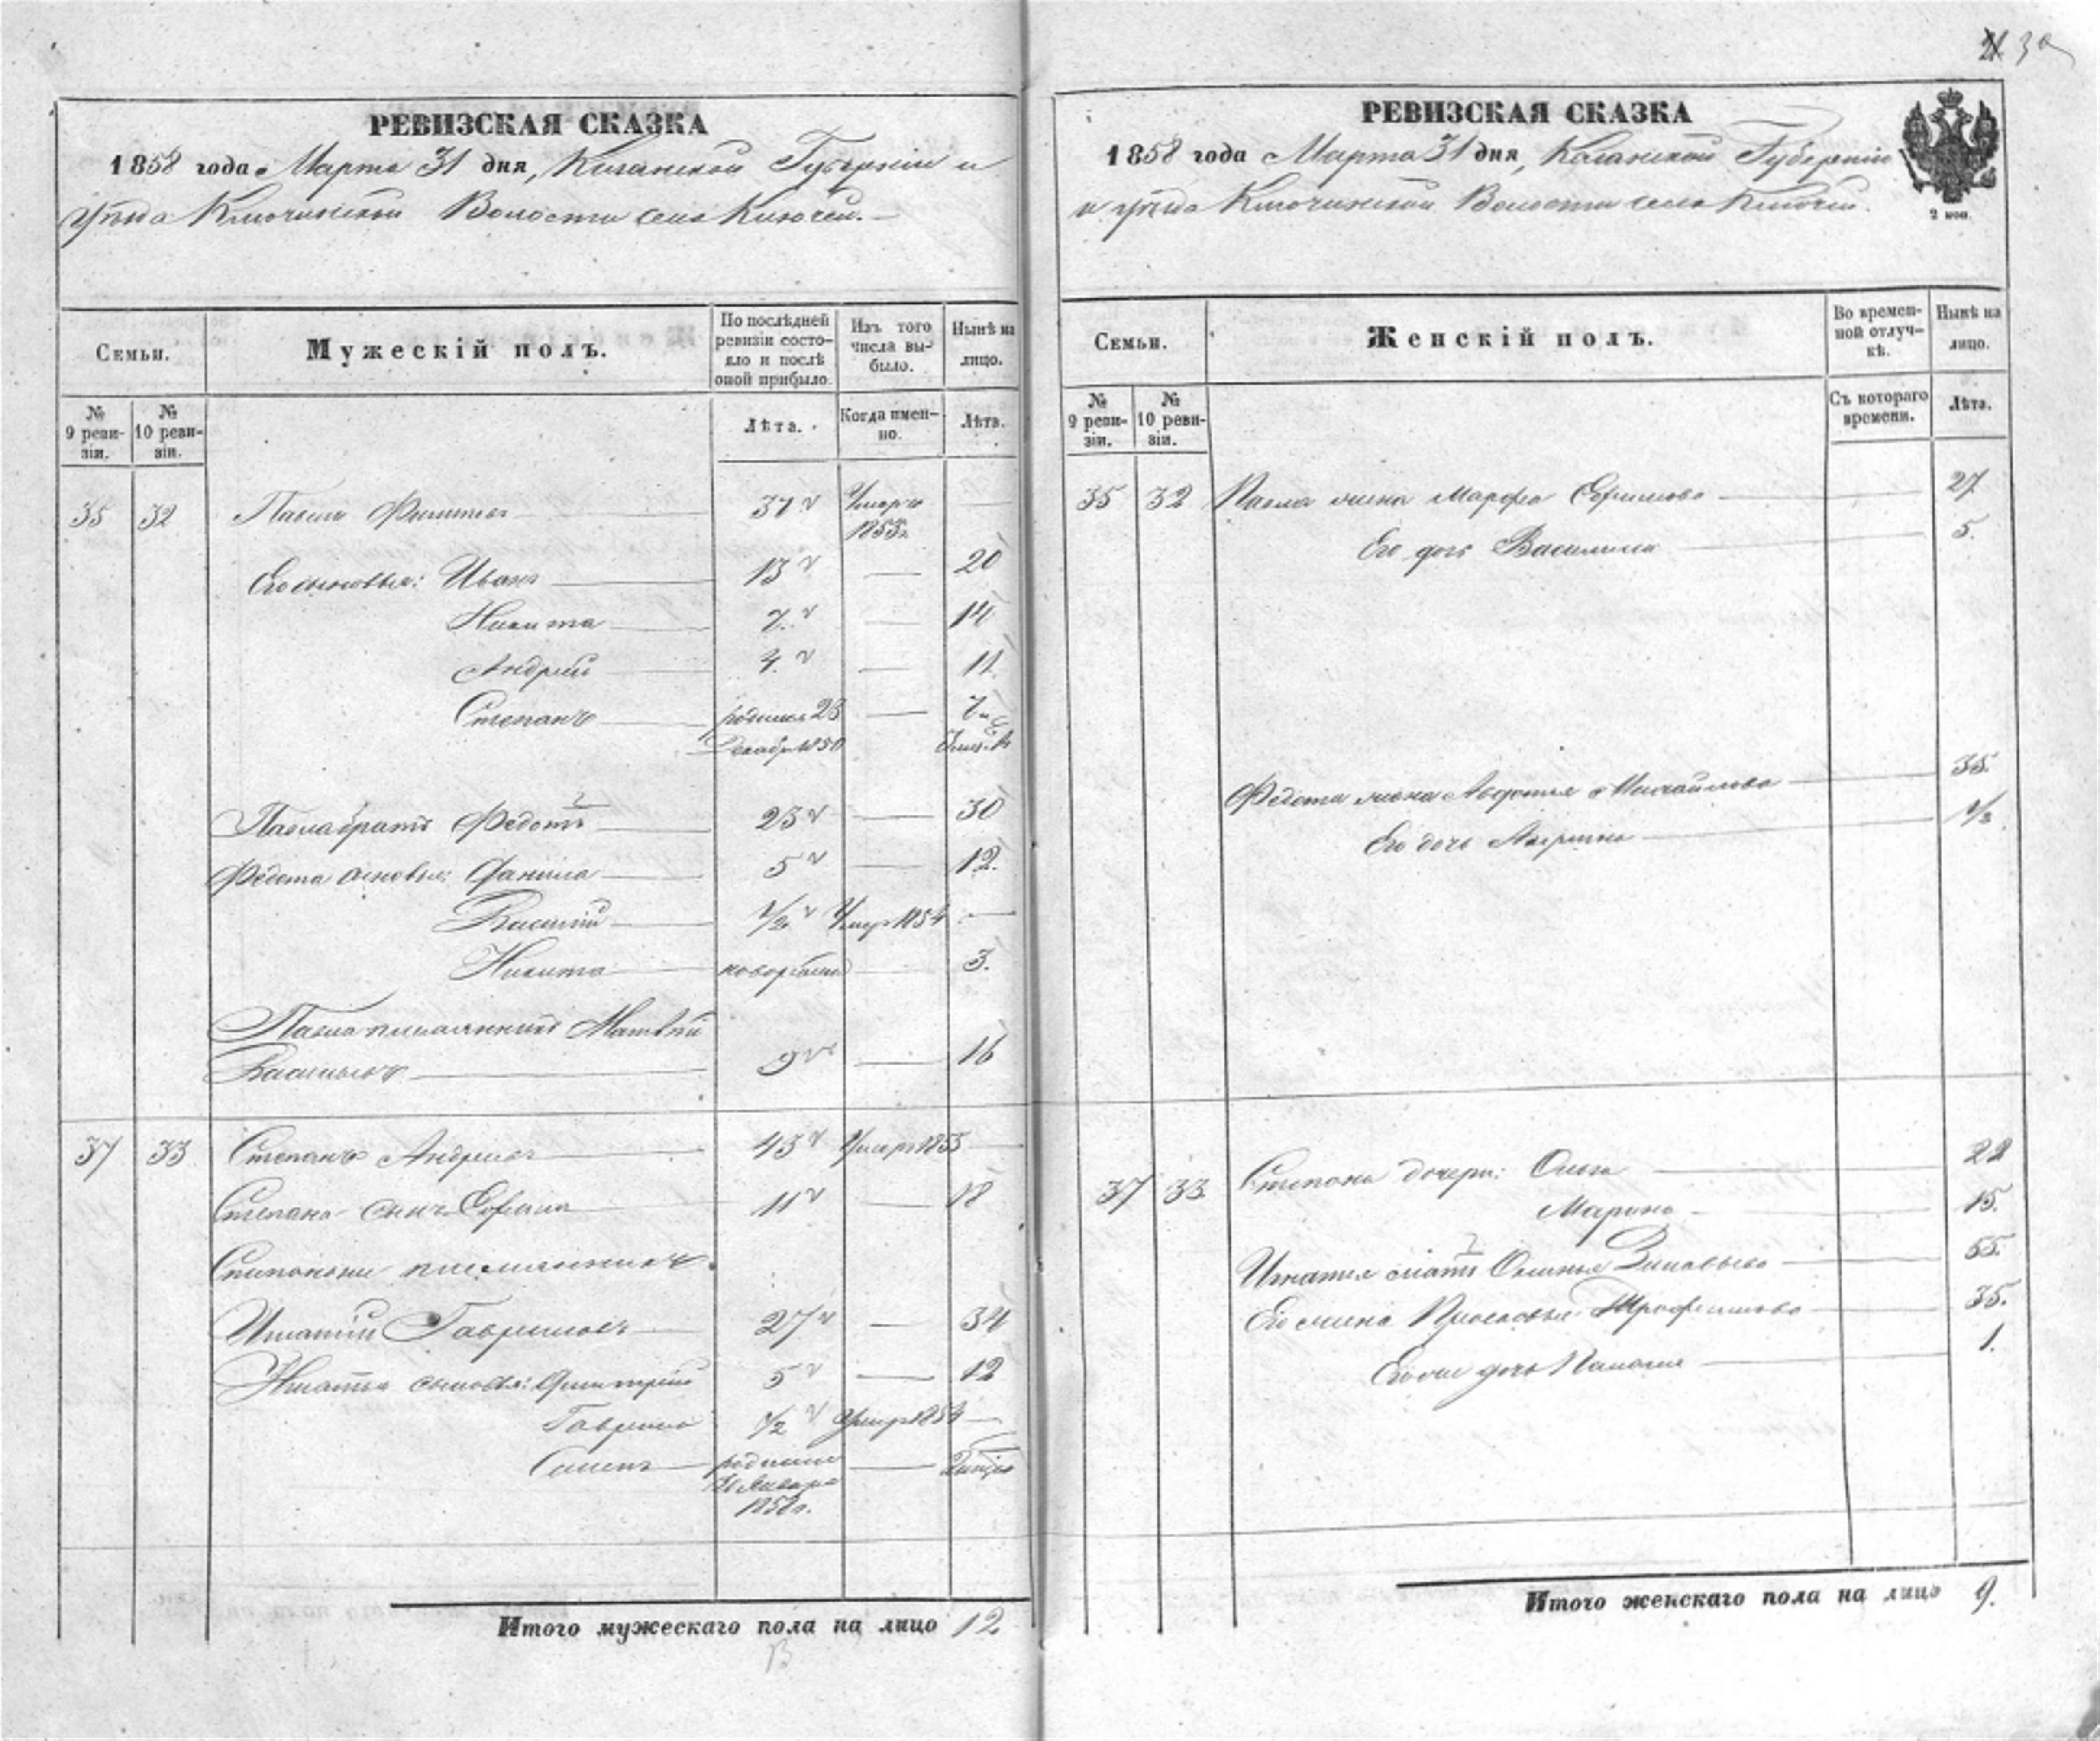 21 30
РЕВИЗСКАЯ СКАЗКА
1858 года Марта 31 дня, Казанской Губерніи и
уѣзда Ключинской Волости села Ключей.
Семьи.
Мужескій полъ.
По послѣдней ревизіи состояло и послѣ оной прибыло.
Изъ того числа выбыло.
Нынѣ на лицо.
№ 9 ревизіи.
№ 10 ревизіи.
Лѣта.
Когда именно.
Лѣта.
35 32 Павелъ Филиповъ 37 Умеръ 1853г.
Его сыновья: Иванъ 13 20
Никита 7. 14
Андрей 4. 11.
Степанъ родился 23 Декабр. 1850 7
Павла братъ Федотъ 23 30
Федота сыновья: Данила 5 12.
Василій 1/2 Умеръ 1854
Никита новорожден 3.
Павла племянникъ Матвѣй
Васильевъ 9 16
37 33 Степанъ Андреевъ 43 Умеръ 1855
Степана сынъ Ефимъ 11 18
Степановы племянники
Игнатій Гавриловъ 27 34
Игнатья сыновья: Дмитрій 5 12
Гаврила 1/2 Умеръ 1854
Семенъ родился Января 1858г.
Итого мужескаго пола на лицо 12
РЕВИЗСКАЯ СКАЗКА
1858 года Марта 31 дня, Казанской Губерніи
и уѣзда Ключинской Волости села Ключей.
2 коп.
Семьи.
Женскій полъ.
Во временной отлучкѣ.
Нынѣ на лицо.
№ 9 ревизіи.
№ 10 ревизіи.
Съ котораго времени.
Лѣта.
35 32 Павла жена Марфа Ефимова 27
Его дочь Василиса 5.
Федота жена Авдотья Михайлова 35.
Его дочь 1/2
37 33 Степана дочери: Ольга 22
Марина 15.
Игнатья мать Зиновьева 55.
Его жена Прасковья Трофимова 35.
Его же дочь Палагея 1.
Итого женскаго пола на лицо 9.